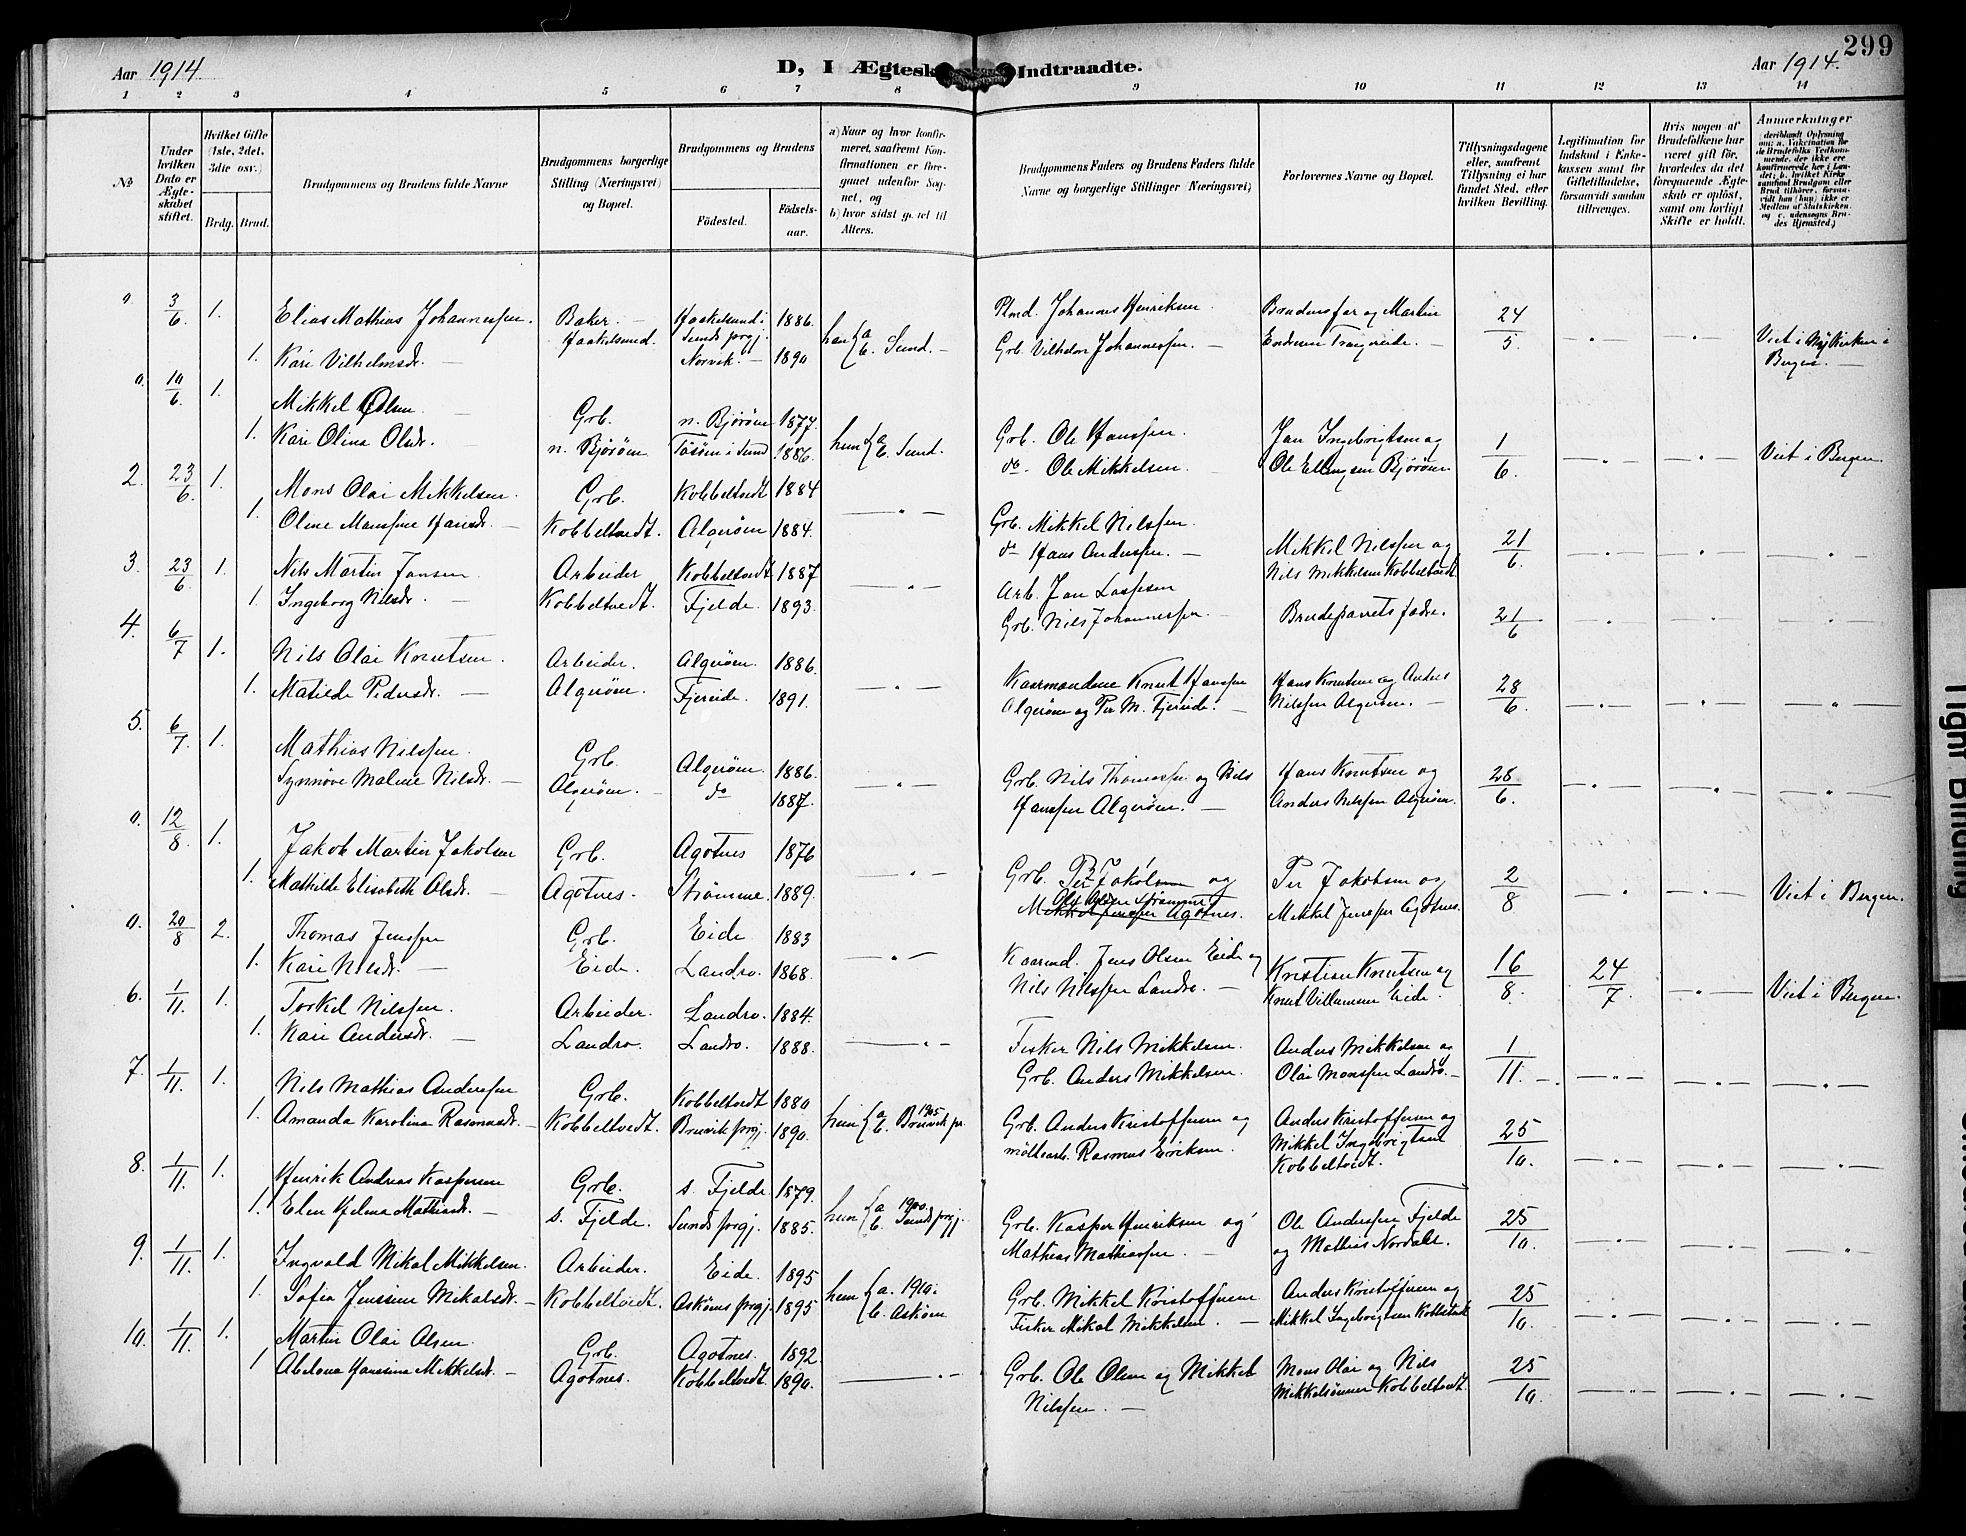 299
Aar 1914.
D, I Ægtesk
Indtraadte.
Aar 1914.
1 2 3 4 5 6 7 8 9 10 11 12 13 14
No
Under hvilken Dato er Ægteskabet stiftet.
Hvilket Gifte (1ste, 2det, 3die osv.)
Brdg. Brud.
Brudgommens og Brudens fulde Navne
Brudgommens borgerlige Stilling (Næringsvei) og Bopæl.
Brudgommens og Brudens
Födested.
Födselsaar.
a) Naar og hvor konfirmeret, saafremt Konfirmationen er foregaaet udenfor Sognet, og
b) hvor sidst gaaet til Alters.
Brudgommens Faders og Brudens Faders fulde Navne og borgerlige Stillinger (Næringsvei)
Forlovernes Navne og Bopæl.
Tillysningsdagene eller, saafremt Tillysning ei har fundet Sted, efter hvilken Bevilling.
Legitimation for Indskud i Enkekassen samt for Giftetilladelse, forsaavidt saadan tiltrænges.
Hvis nogen af Brudefolkene har været gift för, hvorledes da det foregaaende Ægteskab er oplöst, samt om lovligt Skifte er holdt.
Anmerkninger
0. 3/6 1. Elias Mathias Johannessen. Baker. Haakelsund i 1886. Plmd. Johannes Henriksen Brudens far og Martin 24/5
1. Kari Vilhelmsdr. Haakelsund. Sunds prgj. Norvik. 1890 han {a b. Sund. Grb. Vilhelm Johannessen. Viet i Nykirken i Bergen.
0. 10/6 1. Mikkel Olsen Grb. n. Bjorøen 1877. Grb. Ole Hanssen. Jan Ingebrigtsen og 1/6
1. Kari Olina Olsdr. n. Bjorøen Tøsøen i Sund 1886. hun {a b. Sund. do Ole Mikkelsen. Ole Ellingsen Bjorøen Viet i Bergen
2. 23/6 1. Mons Olai Mikkelsen. Grb. Kobbeltvedt 1884 Grb. Mikkel Nilssen. Mikkel Nilssen og 21/6
1. Oline Monsine Hansdr. Kobbeltvedt. Algerøen 1884. do Hans Anderssen. Nils Mikkelsen Kobbeltvedt
3. 23/6 1. Nils Martin Jansen Arbeider Kobbeltvedt 1887 Arb. Jan Lassesen
1. Ingeborg Nilsdr. Kobbeltvedt. Fjelde. 1893. Grb. Nils Johannessen Brudeparrets fædre. 21/6
4. 6/7 1. Nils Olai Knutsen. Arbeider. Algerøen. 1886. Kaarmændene Knut Hanssen Hans Knutsen og Anders 28/6
1. Matilde Pedersdr. Algerøen. Fjereide. 1891. Algerøen og Per M. Fjereide. Nilssen Algerøen.
5. 6/7 1. Mathias Nilssen. Grb. Algerøen. 1886. Grb. Nils Thomassen og Nils Hans Knutsen og 28/6
Synnøve Maline Nilsdr. Algerøen. do 1887. Hanssen Algerøen. Anders Nilssen Algerøen.
0. 12/8 1. Jakob Martin Jakobsen Grb. Agotnes 1876 Grb. Per Jakobsen og Per Jakobsen og 2/8
1. Mathilde Elisabeth Olsdr. Agotnes. Strømme. 1889. Mikkel Jenssen Agotnes. Mikkel Jenssen Agotnes. Viet i Bergen.
0. 20/8 2. Thomas Jenssen Grb. Eide 1883 Kaarmd. Jens Olsen Eide og Kristian Knutsen og 16/8. 24/7.
1. Kari Nilsdr. Eide. Landro. 1868. Nils Nilssen Landro. Knut Villumsen Eide. Viet i Bergen.
6. 1/11 1. Torkel Nilssen. Arbeider. Landro. 1884. Fisker Nils Mikkelsen. Anders Mikkelsen og 1/11.
1. Kari Andersdr. Landro. Landro. 1888. Grb. Anders Mikkelsen. Olai Monssen Landro.
7. 1/11. 1. Nils Mathias Anderssen Grb. Kobbeltvedt 1880 Grb. Anders Kristoffersen og Anders Kristoffersen og 25/10.
1. Amanda Karolina Rasmusdr. Kobbeltvedt. Bruvik prgj. 1890. hun {a 1905 b. Bruvik pr. Rasmus Eriksen. Mikkel Ingebrigtsen Kobbeltvedt.
8. 1/11. 1. Henrik Andreas Kaspersen Grb. s. Fjelde. 1879. Grb. Kasper Henriksen og Ole Anderssen Fjelde 25/10
1. Elen Helena Mathiasdr. s. Fjelde. Sunds prgj. 1885. hun {a 1900. b. Sunds prgj. Mathias Mathiassen. og Mathias Nordalr.
9. 1/11. 1. Ingvald Mikal Mikkelsen. Arbeider. Eide. 1895 Grb. Mikkel Kristoffersen Anders Kristoffersen og 25/10.
1. Sofia Jenssine Mikalsdr. Kobbeltvedt. Askøens prgj. 1895 hun {a. 1910. b. Askøen Fisker Mikal Mikkelsen. Mikkel Ingebrigtsen Kobbeltvedt
10. 1/11. 1. Martin Olai Olsen Grb. Agotnes. 1892. Grb. Ole Olsen og Mikkel Mons Olai og Nils 25/10.
1 Abelona Hanssine Mikkelsdr. Agotnes. Kobbeltvedt. 1890. Nilssen. Mikkelsønner Kobbeltvedt